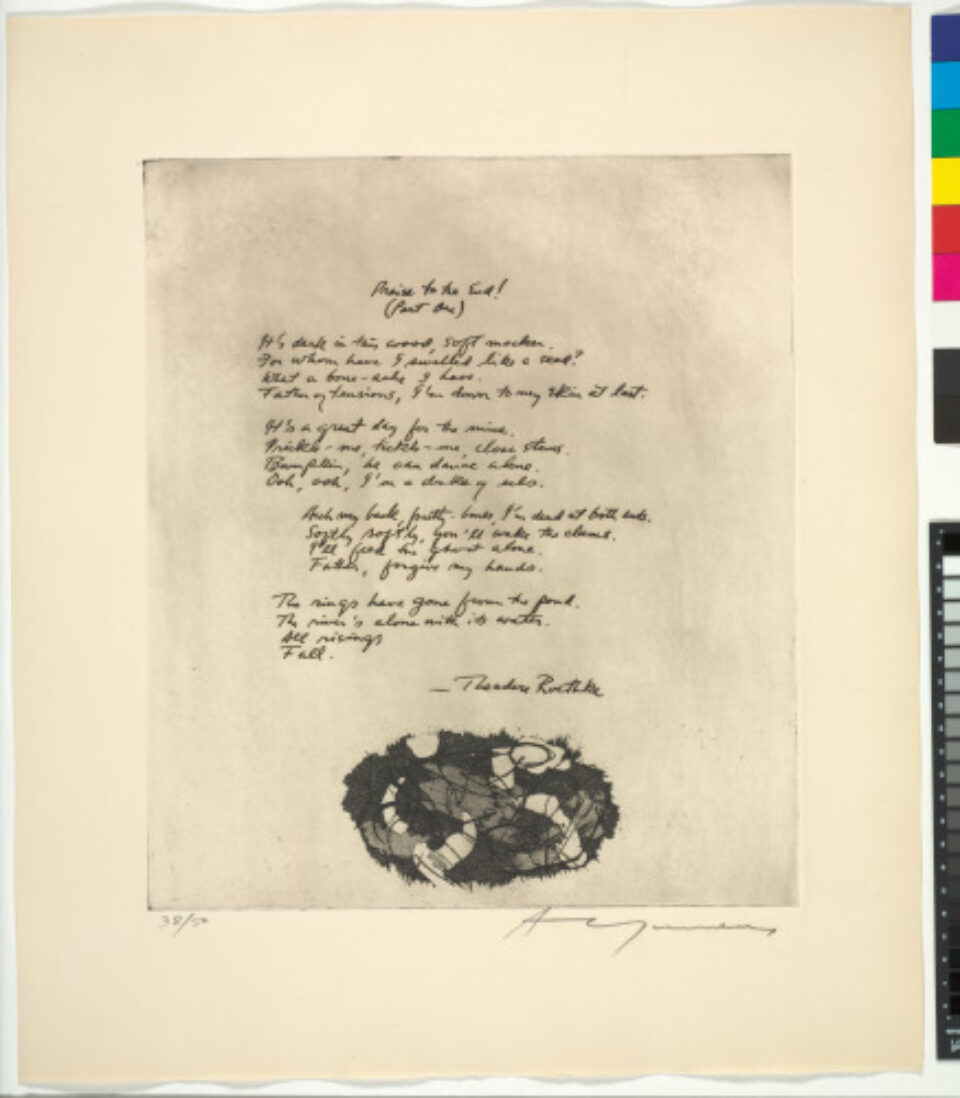 Praise to the End!
(Part One)
It's dark in this wood, soft mocker.
For whom have I swelled like a seed?
What a bone-ache I have.
Father of tensions, I'm down to my skin at last.
It's a great day for the mice.
Prickle-me, tickle-me, close stems.
Bumpkin, he can dance alone.
Ooh, ooh, I'm a duke of eels.
Arch my back, pretty-bones, I'm dead at both ends.
Softly softly, you'll wake the clams.
I'll feed the ghost alone.
Father, forgive my hands.
The rings have gone from the pond.
The river's alone with its water.
All risings
Fall.
— Theodore Roethke
38/50